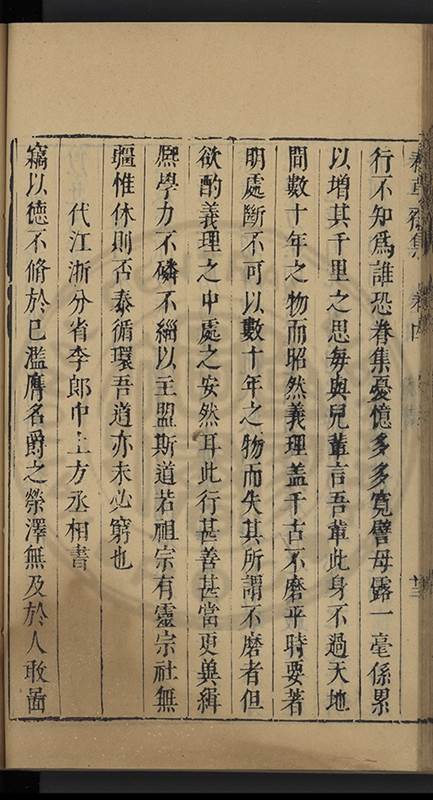 行不知為誰恐眷集憂憶多多寬譬毋露一毫係累
以增其千里之思每與兒輩言吾輩此身不過天地
間數十年之物而昭然義理盖千古不磨平時要著
明處斷不可以數十年之物而失其所謂不磨者但
欲酌義理之中處之安然耳此行甚善甚當更兾緝
熈學力不磷不緇以主盟斯道若祖宗有靈宗社無
疆惟休則否泰循環吾道亦未必窮也
代江浙分省李郎中上方丞相書
竊以德不脩於已濫膺名爵之榮澤無及於人敢啚